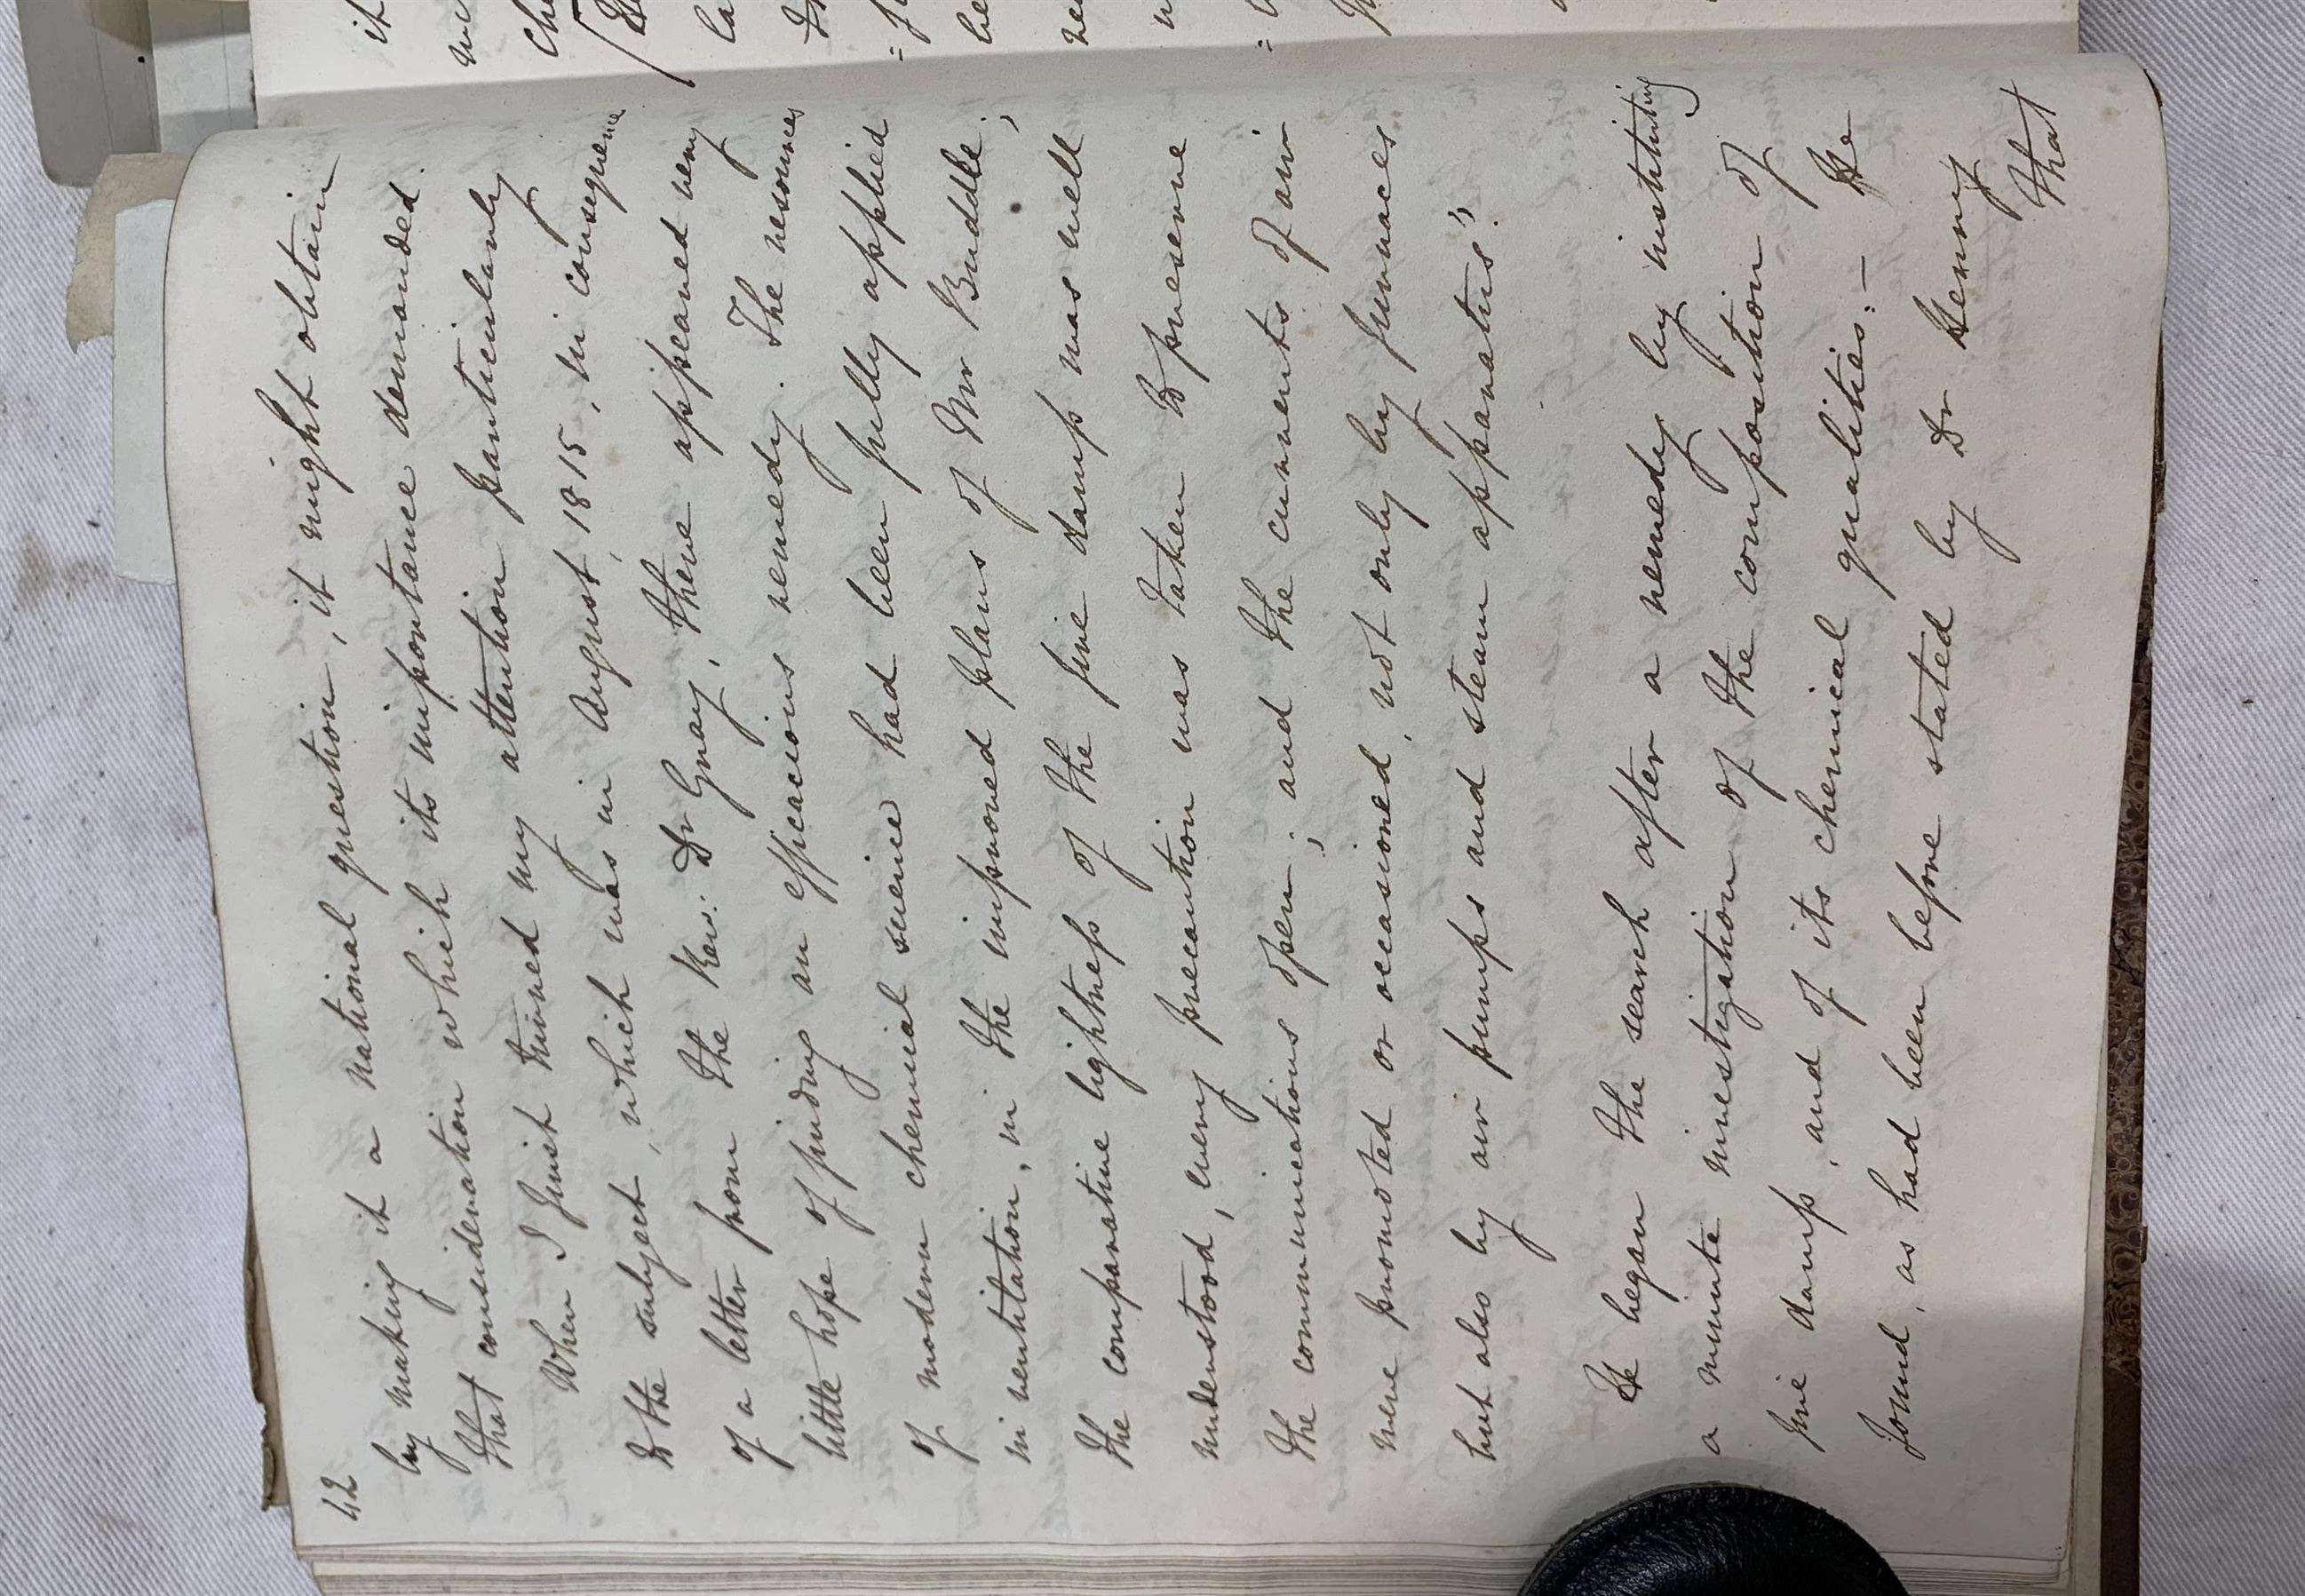 42
by making it a national question, it might obtain
that consideration which its importance demanded.
When I first turned my attention particularly
to the subject, which was in August, 1815, in consequence
of a letter from the Rev: Dr Gray, there appeared very
little hope of finding an efficacious remedy. The resources
of modern chemical science had been fully applied
in ventilation, in the improved plans of Mr Buddle;
the comparative lightness of the fire damp was well
understood, every precaution was taken to preserve
the communications open; and the currents of air
were promoted or occasioned, not only by furnaces
but also by air pumps and steam apparatus".
He began the search after a remedy by instituting
a minute investigation of the composition of
fire damp, and of its chemical qualities:— He
found, as had been before stated by Dr Henry
that